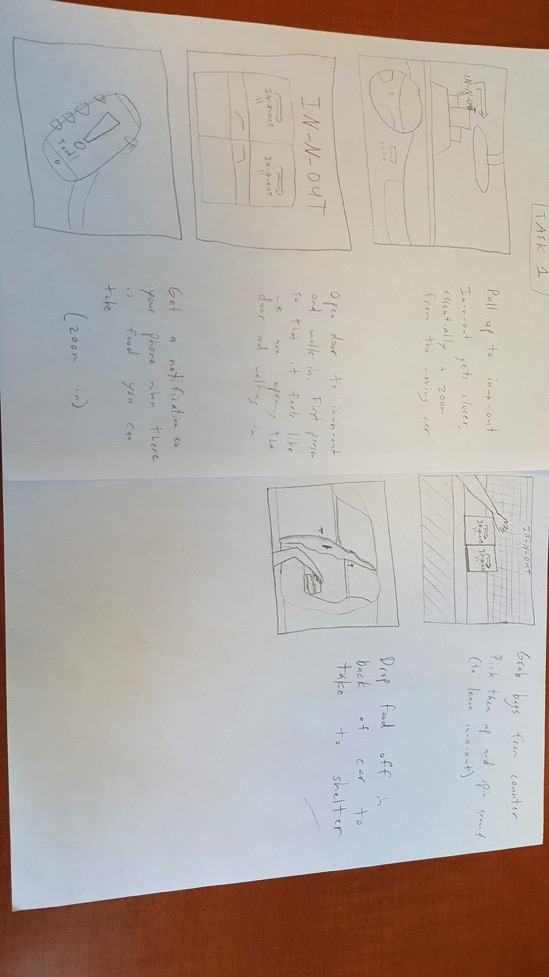 TASK 1
IN-N-OUT
Pull up to in-n-out
In-n-out gets closer,
essentially a zoom
from the moving car
IN-N-OUT
IN-N-OUT
IN-N-OUT
Open door to in-n-out
and walk in. First person
so that it feels like
we are opening the
door and walking in
!
Food!
Get a notification on
your phone when there
is food you can
take
(zoom in)
IN-N-OUT
Grab bags from counter
Pick them up and spin around
(to leave in-n-out)
Drop food off in
back of car to
take to shelter